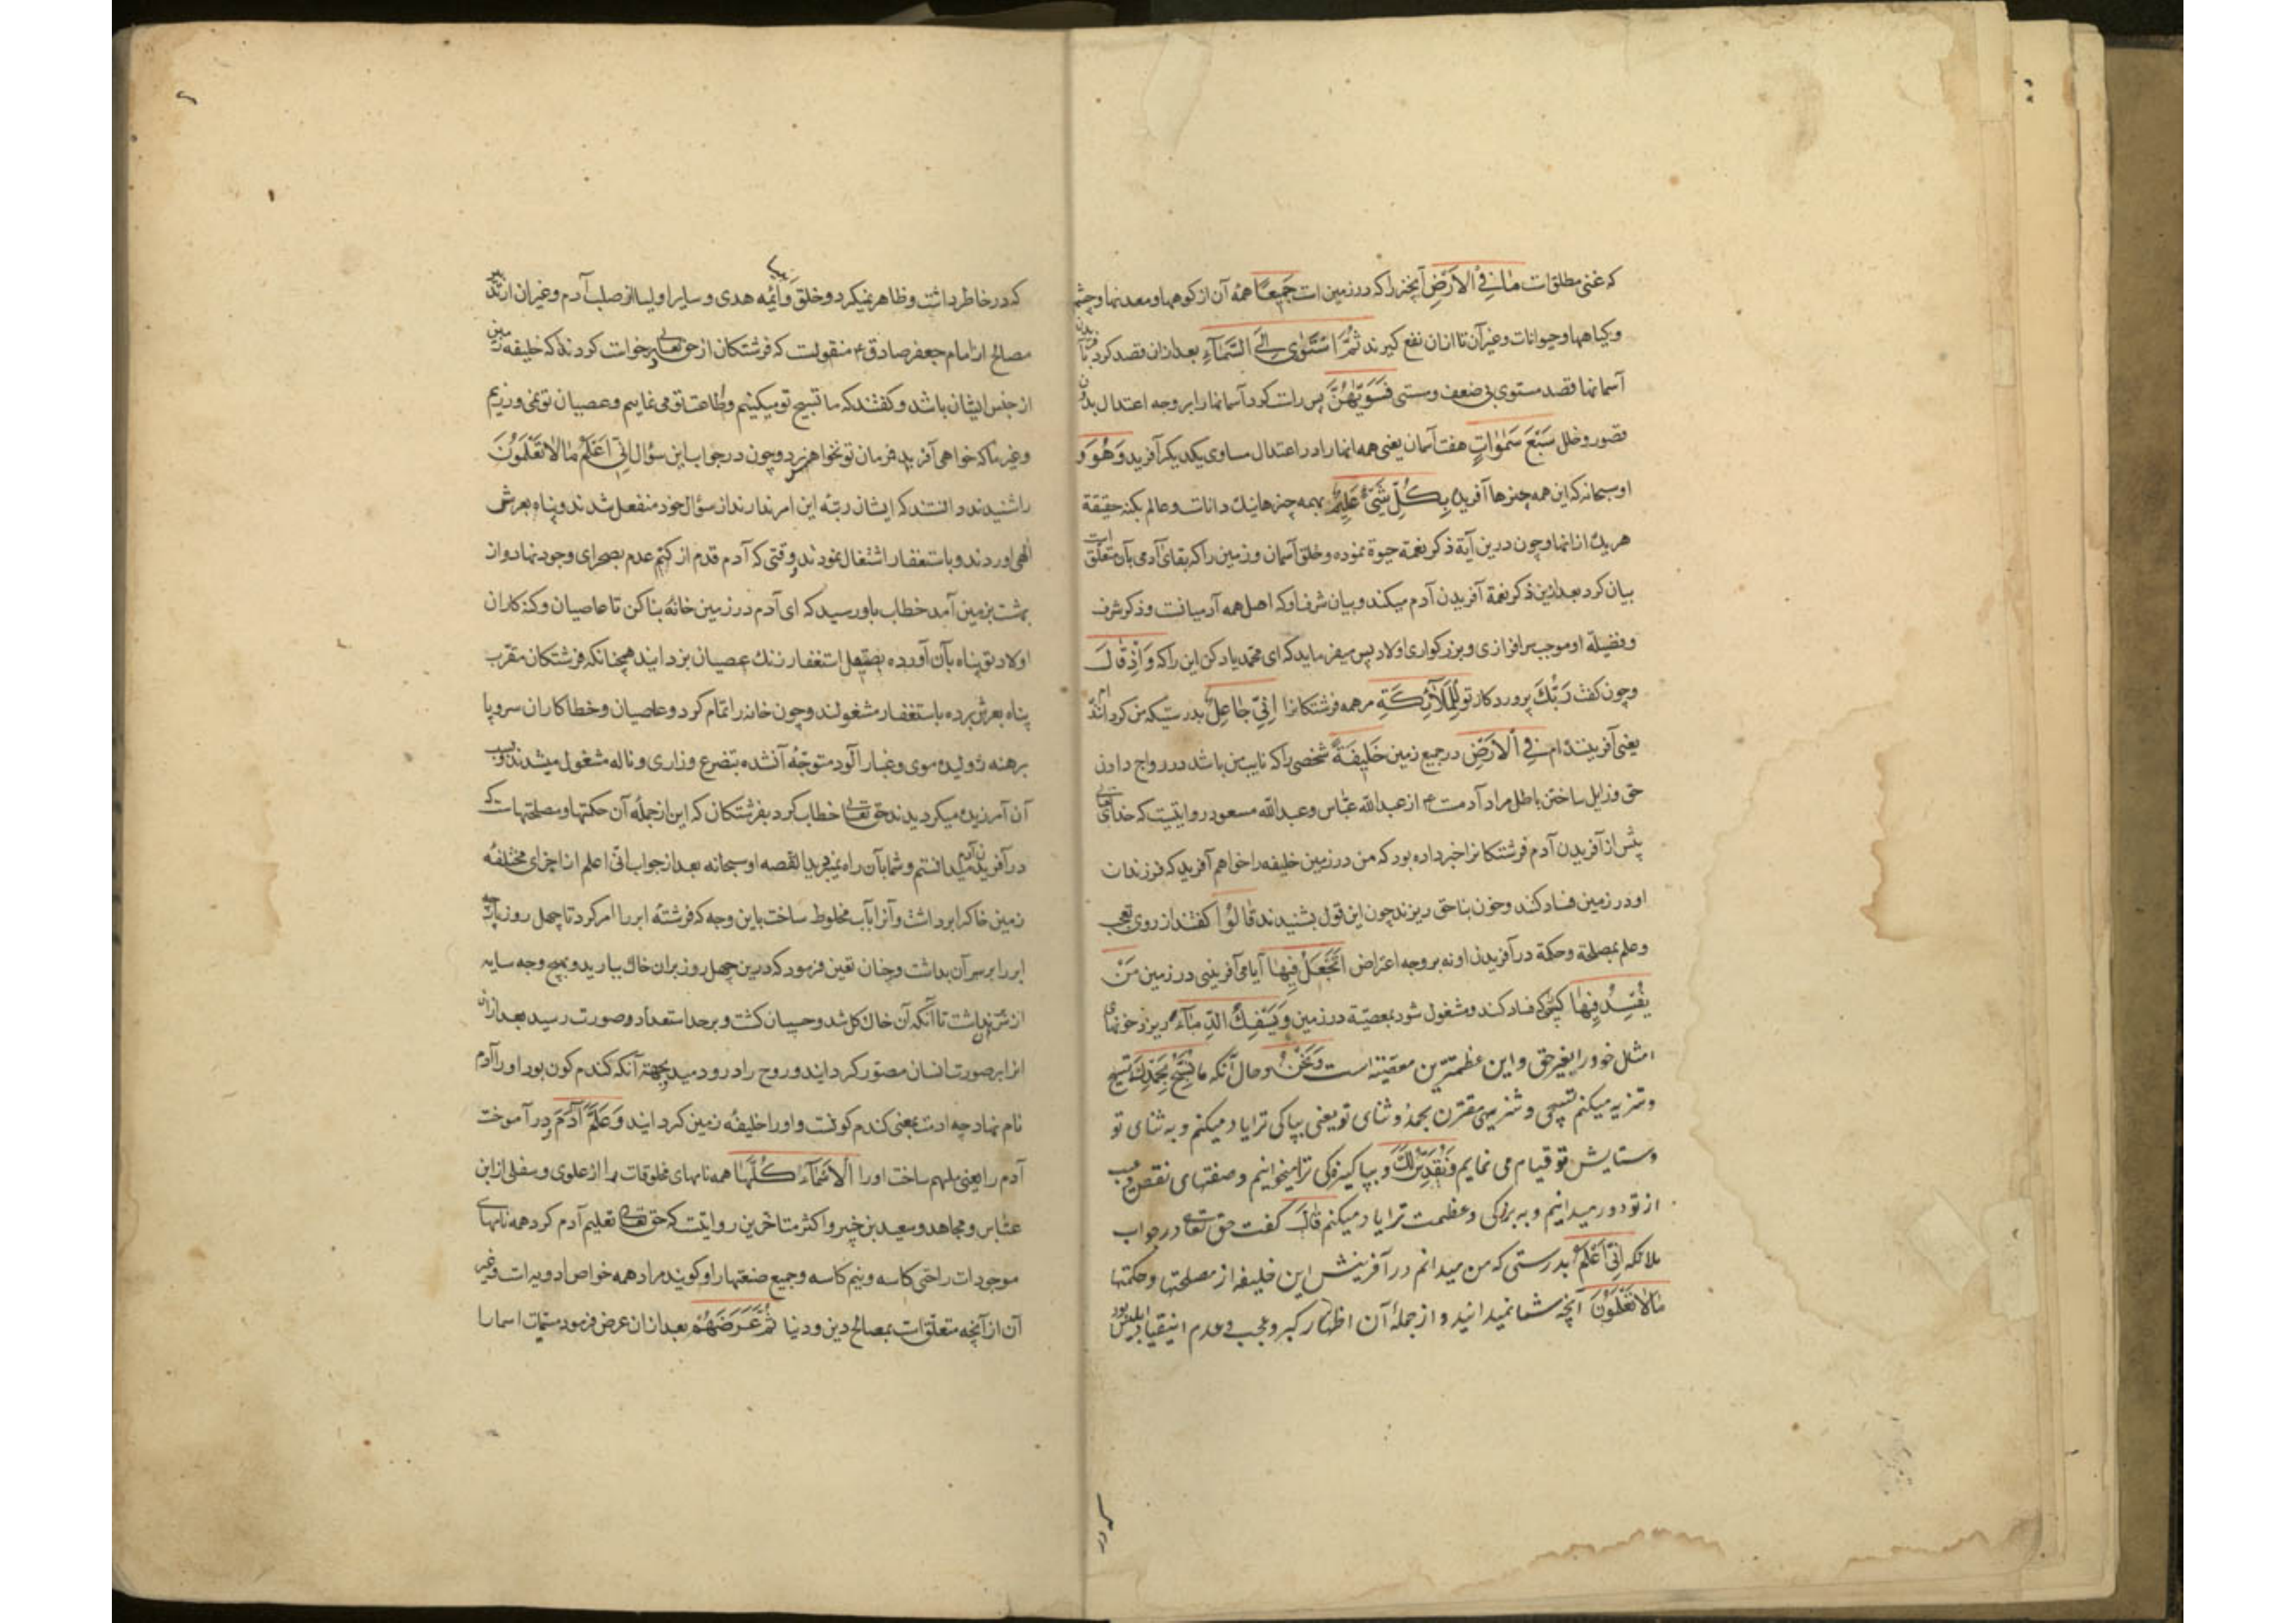 که غنی مطلق است مٰا فِی الْاَرْضِ آنچیز را که در زمین است جَمِیعًا همه آن از کوهها و معدنها و چشمه
و کیاهها و حیوانات و غیر آن تا از ان نفع کیرند ثُمَّ اسْتَوٰی اِلَی السَّمٰآءِ بعد از ان قصد کرد
آسمانها قصد مستوی بی ضعف و سستی فَسَوّٰیهُنَّ پس راست کرد آسمانها را بر وجه اعتدال بدون
قصور و خلل سَبْعَ سَمٰوٰاتٍ هفت آسمان یعنی همه انها را در اعتدال مساوی یکدیکر آفرید وَهُوَ و
او سبحانه که این همه چیزها آفریده بِکُلِّ شَیْءٍ عَلِیمٌ بهمه چیزها نیک داناست و عالم بکنه حقیقة
هریک از انها و چون درین آیة ذکر نعمة حیوة نموده و خلق آسمان و زمین را که بقای آدمی بآن متعلق است
بیان کرد بعد ازین ذکر نعمة آفریدن آدم میکند و بیان شرف او که اصل همه آدمیانست و ذکر شرف
و فضیلة او موجب سرافرازی و بزرکواری اولاد پس میفرماید که ای محمد یاد کن این را که وَاِذْ قٰالَ
و چون کفت رَبُّکَ پروردکار تو لِلْمَلٰآئِکَةِ مر همه فرشتکانرا اِنّی جٰاعِلٌ بدرستیکه من کرداننده ام
یعنی آفریننده ام فِی الْاَرْضِ در جمیع زمین خَلِیفَةً شخصی را که نایب من باشد در رواج دادن
حق و زایل ساختن باطل مراد آدمست ع از عبدالله عباس و عبدالله مسعود روایتیست که خدای تعالی
پیش از آفریدن آدم فرشتکانرا خبر داده بود که من در زمین خلیفه را خواهم آفرید که فرزندان
او در زمین فساد کنند و خون بناحق ریزند چون این قول بشنیدند قٰالُوٓا کفتند از روی تعجب
و علم بمصلحة و حکمة در آفریدن او نه بر وجه اعتراض اَتَجْعَلُ فِیهٰا آیا می آفرینی در زمین مَنْ
یُفْسِدُ فِیهٰا کسی که فساد کند و مشغول شود بمعصیة در زمین وَ یَسْفِکُ الدِّمٰآءَ و بریزد خونهای
امثل خود را بغیر حق و این عظمترین معصیة است وَ نَحْنُ و حال آنکه ما نُسَبِّحُ بِحَمْدِکَ تسبیح
و تنزیه میکنم تسبیحی و تنزیهی مقترن بحمد و ثنای تو یعنی بپاکی ترا یاد میکنم و به ثنای تو
و ستایش تو قیام می نمایم وَ نُقَدِّسُ لَکَ و بپاکیزکی ترا میخوانیم و صفتهای نقص و عیب
از تو دور میدانیم و به بزرکی و عظمت ترا یاد میکنم قٰالَ کفت حق تعالی در جواب
ملائکه اِنّی اَعْلَمُ بدرستی که من میدانم در آفرینش این خلیفه از مصلحتها و حکمتها
مٰا لٰا تَعْلَمُونَ آنچه شما نمیدانید و از جملهٔ آن اظهار کبر و عجب و عدم انقیاد ابلیس بود
که در خاطر داشت و ظاهر نمیکرد و خلق و ائمه هدی و سایر اولیا از صلب آدم و غیر ان از
مصالح از امام جعفر صادق ع منقولست که فرشتکان از حق تعالی درخواست کردند که خلیفه زمین
از جنس ایشان باشد و کفتند که ما تسبیح تو میکنیم و طاعت تو می نماییم و عصیان تو نمی ورزیم
و غیر ما که خواهی آفرید فرمان تو نخواهند برد و چون در جواب این سؤال اِنّی اَعْلَمُ مٰا لٰا تَعْلَمُونَ
را شنیدند دانستند که ایشان رتبه این امر ندارند از سؤال خود منفعل شدند و پناه بعرش
الهی اوردند و باستغفار اشتغال نمودند و وقتی که آدم قدم از کتم عدم بصحرای وجود نهاد و از
بهشت بزمین آمد خطاب باو رسید که ای آدم در زمین خانهٔ بنا کن تا عاصیان و کنه کاران
اولاد تو پناه بآن آورده بصیقل استغفار زنک عصیان بزدایند همچنانکه فرشتکان مقرب
پناه بعرش برده باستغفار مشغولند و چون خانه را تمام کرد و عاصیان و خطاکاران سر و پا
برهنه ژولیده موی و غبار آلود متوجّه آن شده بتضرع و زاری و ناله مشغول میشدند و
آن آمرزیده میکردیدند حق تعالی خطاب کرد بفرشتکان که این از جملهٔ آن حکمتها و مصلحتهاست که
در آفریدن آدم میدانستم و شما بآن راه نمیبردید القصه او سبحانه بعد از جواب انّی اعلم از اجزای مختلفهٔ
زمین خاک را برداشت و آنرا بآب مخلوط ساخت باین وجه که فرشتهٔ ابر را امر کرد تا چهل روز پارچه
ابر را بر سر آن بداشت و چنان تعین فرمود که درین چهل روز بران خاک ببارید و بهیچ وجه سایه
از سر آن نداشت تا آنکه آن خاک کل شد و چسپان کشت و بر حد استعداد و صورت رسید بعد از ان
انرا بر صورت انسان مصوّر کردایند و روح را درو دمید و بجهة آنکه کندم کون بود او را آدم
نام نهاد چه ادمت بمعنی کندم کونست و او را خلیفهٔ زمین کردایند وَ عَلَّمَ آدَمَ و در آموخت
آدم را یعنی ملهم ساخت او را الْاَسْمٰآءَ کُلَّهٰا همه نامهای مخلوقات را از علوی و سفلی از ابن
عباس و مجاهد و سعید بن جبیر و اکثر متاخرین روایتست که حق تعالی تعلیم آدم کرد همه نامهای
موجودات را حتی کاسه و نیم کاسه و جمیع صنعتها را و کویند مراد همه خواص ادویه است و غیر
آن از آنچه متعلق است بمصالح دین و دنیا ثُمَّ عَرَضَهُمْ بعد از ان عرض فرمود مسمّیات اسما را